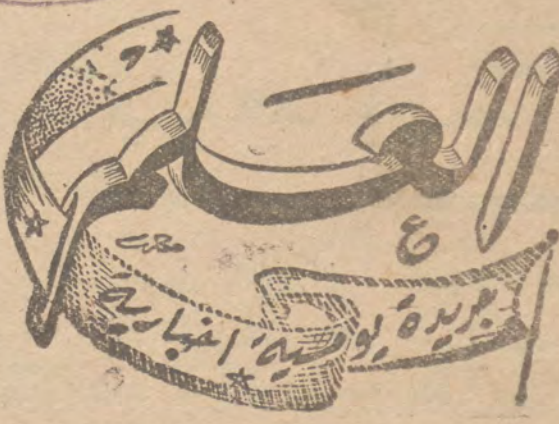 العَلم
جريدة يومية اخبارية